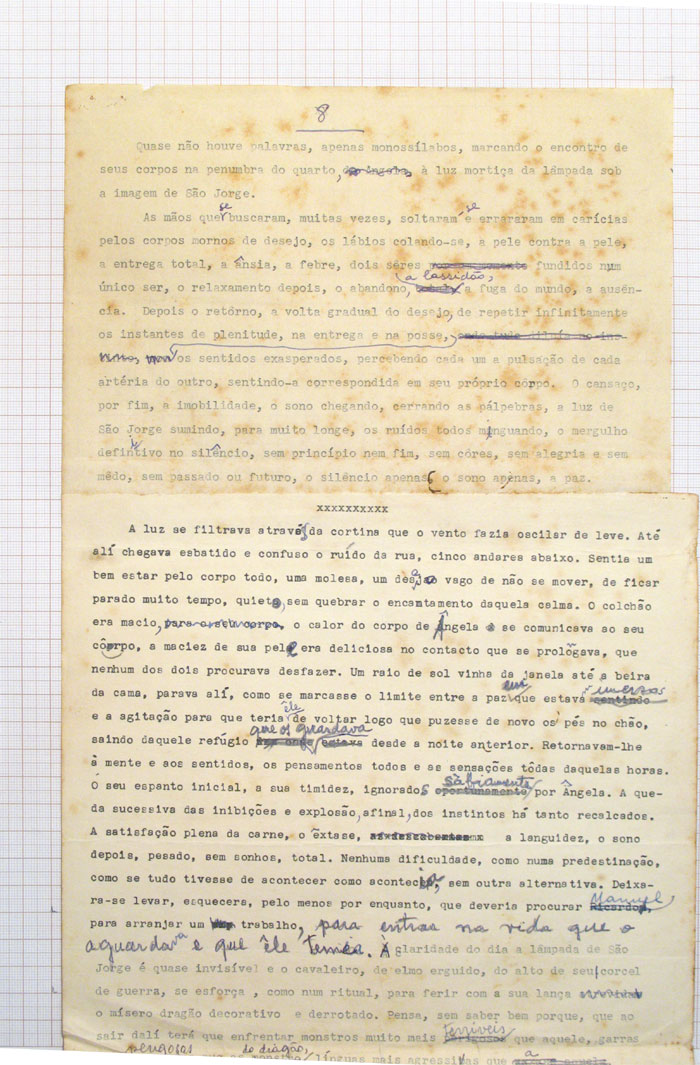 8
Quase não houve palavras, apenas monossílabos, marcando o encontro de
seus corpos na penumbra do quarto, de Ângela, à luz mortiça da lâmpada sob
a imagem de São Jorge.
As mãos que se buscaram, muitas vezes, soltaram-se e erraram em carícias
pelos corpos mornos de desejo, os lábios colando-se, a pele contra a pele,
a entrega total, a ânsia, a febre, dois sêres fundidos num
único ser, o relaxamento depois, o abandono, a lassidão, a fuga do mundo, a ausên-
cia. Depois o retôrno, a volta gradual do desejo, de repetir infinitamente
os instantes de plenitude, na entrega e na posse,
os sentidos exasperados, percebendo cada um a pulsação de cada
artéria do outro, sentindo-a correspondida em seu próprio corpo. O cansaço,
por fim, a imobilidade, o sono chegando, cerrando as pálpebras, a luz de
São Jorge sumindo, para muito longe, os ruídos todos minguando, o mergulho
definitivo no silêncio, sem princípio nem fim, sem côres, sem alegria e sem
mêdo, sem passado ou futuro, o silêncio apenas, o sono apenas, a paz.
xxxxxxxxxx
A luz se filtrava através da cortina que o vento fazia oscilar de leve. Até
alí chegava esbatido e confuso o ruído da rua, cinco andares abaixo. Sentia um
bem estar pelo corpo todo, uma molesa, um desejo vago de não se mover, de ficar
parado muito tempo, quieto, sem quebrar o encantamento daquela calma. O colchão
era macio, para o seu corpo, o calor do corpo de Ângela se comunicava ao seu
corpo, a maciez de sua pele era deliciosa no contacto que se prolongava, que
nenhum dos dois procurava desfazer. Um raio de sol vinha da janela até a beira
da cama, parava alí, como se marcasse o limite entre a paz em que estava imerso sentindo
e a agitação para que teria êle de voltar logo que puzesse de novo os pés no chão,
saindo daquele refúgio que os guardava em que estava desde a noite anterior. Retornavam-lhe
à mente e aos sentidos, os pensamentos todos e as sensações tôdas daquelas horas.
O seu espanto inicial, a sua timidez, ignorados sàbiamente oportunamente por Ângela. A que-
da sucessiva das inibições e explosão, afinal, dos instintos há tanto recalcados.
A satisfação plena da carne, o êxtase, a languidez, o sono
depois, pesado, sem sonhos, total. Nenhuma dificuldade, como numa predestinação,
como se tudo tivesse de acontecer como acontecia, sem outra alternativa. Deixa-
ra-se levar, esquecera, pelo menos por enquanto, que deveria procurar Manuel Ricardo,
para arranjar um trabalho, para entrar na vida que o
aguardava e que êle temea. À claridade do dia a lâmpada de São
Jorge é quase invisível e o cavaleiro, de elmo erguido, do alto de seu corcel
de guerra, se esforça , como num ritual, para ferir com a sua lança
o mísero dragão decorativo e derrotado. Pensa, sem saber bem porque, que ao
sair dalí terá que enfrentar monstros muito mais terríveis perigosos que aquele, garras
perigosas do dragão, línguas mais agressivas que a